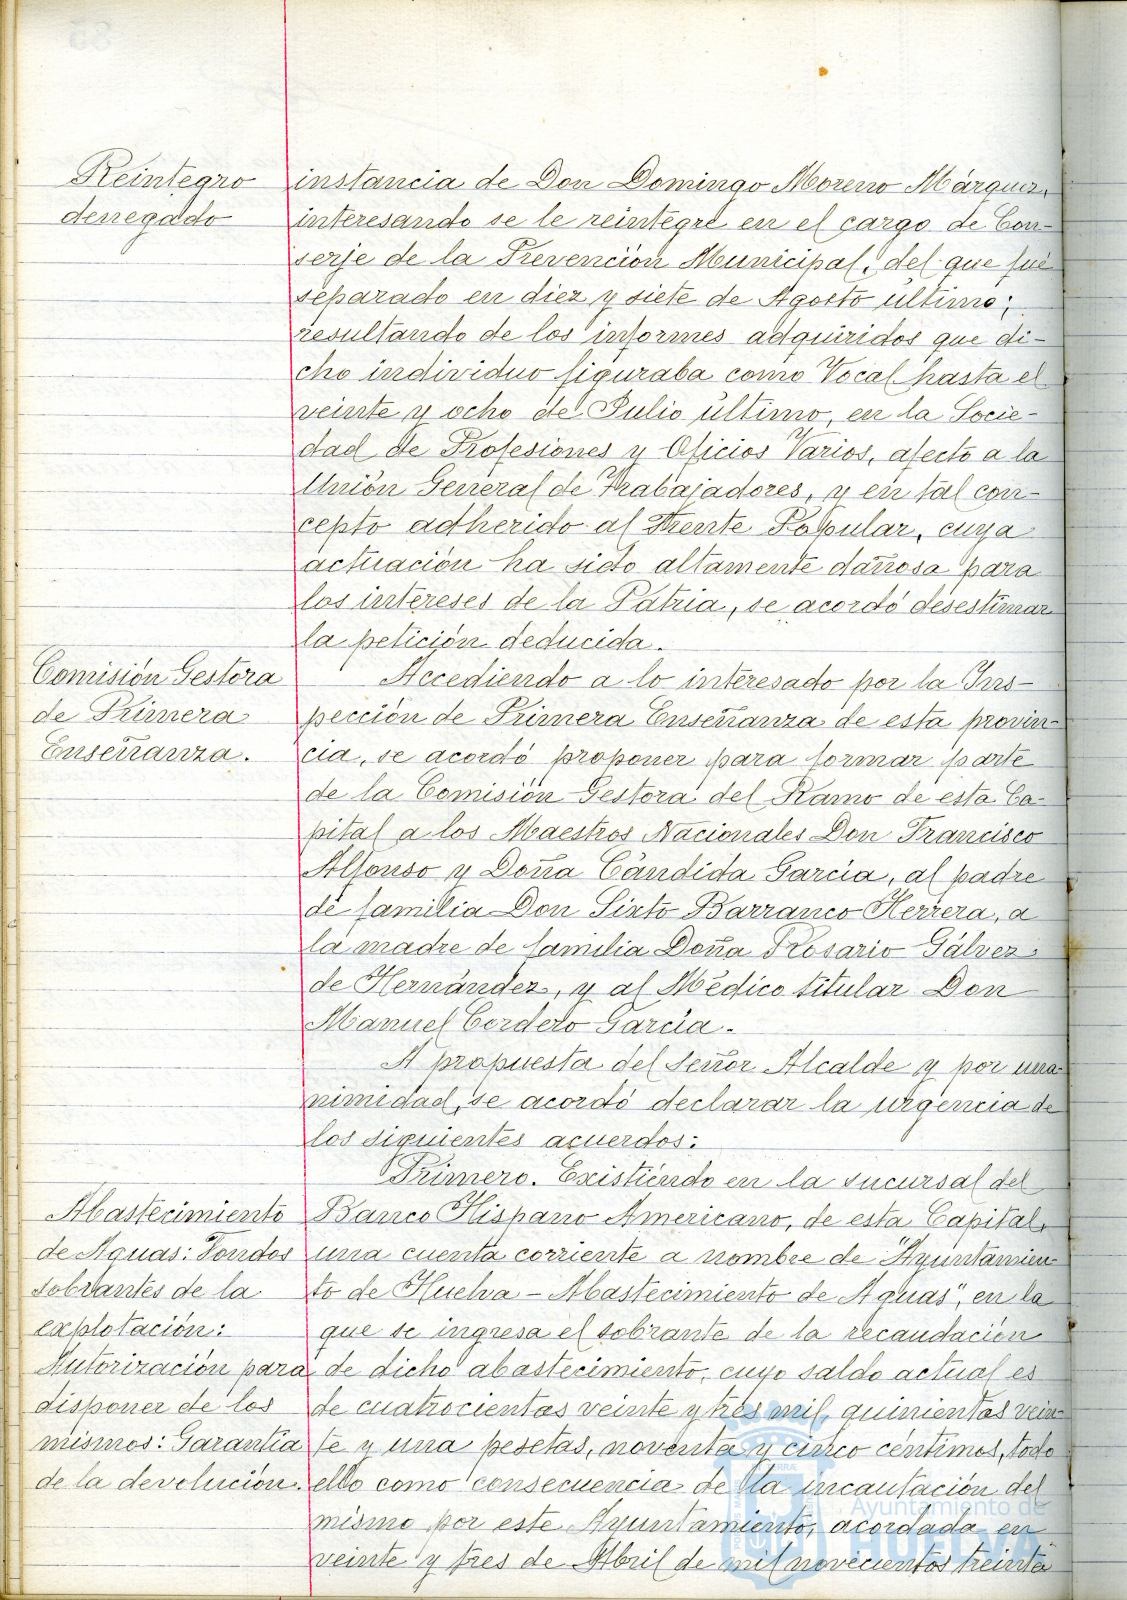 Reintegro
denegado
instancia de Don Domingo Moreno Márquez,
interesando se le reintegre en el cargo de Con-
serje de la Prevención Municipal, del que fué
separado en diez y siete de Agosto último;
resultando de los informes adquiridos que di-
cho individuo figuraba como Vocal hasta el
veinte y ocho de Julio último, en la Socie-
dad de Profesiones y Oficios Varios, afecto a la
Unión General de Trabajadores, y en tal con-
cepto adherido al Frente Popular, cuya
actuación ha sido altamente dañosa para
los intereses de la Patria, se acordó desestimar
la petición deducida.
Comisión Gestora
de Primera
Enseñanza.
Accediendo a lo interesado por la Ins-
pección de Primera Enseñanza de esta provin-
cia, se acordó proponer para formar parte
de la Comisión Gestora del Ramo de esta Ca-
pital a los Maestros Nacionales Don Francisco
Alfonso y Doña Cándida García, al padre
de familia Don Sixto Barranco Herrera, a
la madre de familia Doña Rosario Gálvez
de Hernández, y al Médico titular Don
Manuel Cordero García.
A propuesta del señor Alcalde y por una-
nimidad, se acordó declarar la urgencia de
los siguientes acuerdos:
Primero. Existiendo en la sucursal del
Abastecimiento
de Aguas: Fondos
sobrantes de la
explotación:
Autorización para
disponer de los
mismos: Garantía
de la devolución.
Banco Hispano Americano, de esta Capital,
una cuenta corriente a nombre de "Ayuntamien-
to de Huelva - Abastecimiento de Aguas", en la
que se ingresa el sobrante de la recaudación
de dicho abastecimiento, cuyo saldo actual es
de cuatrocientas veinte y tres mil, quinientas vein-
te y una pesetas, noventa y cinco céntimos, todo
ello como consecuencia de la incautación del
mismo por este Ayuntamiento, acordada en
veinte y tres de Abril de mil novecientos treinta
Ayuntamiento de
HUELVA